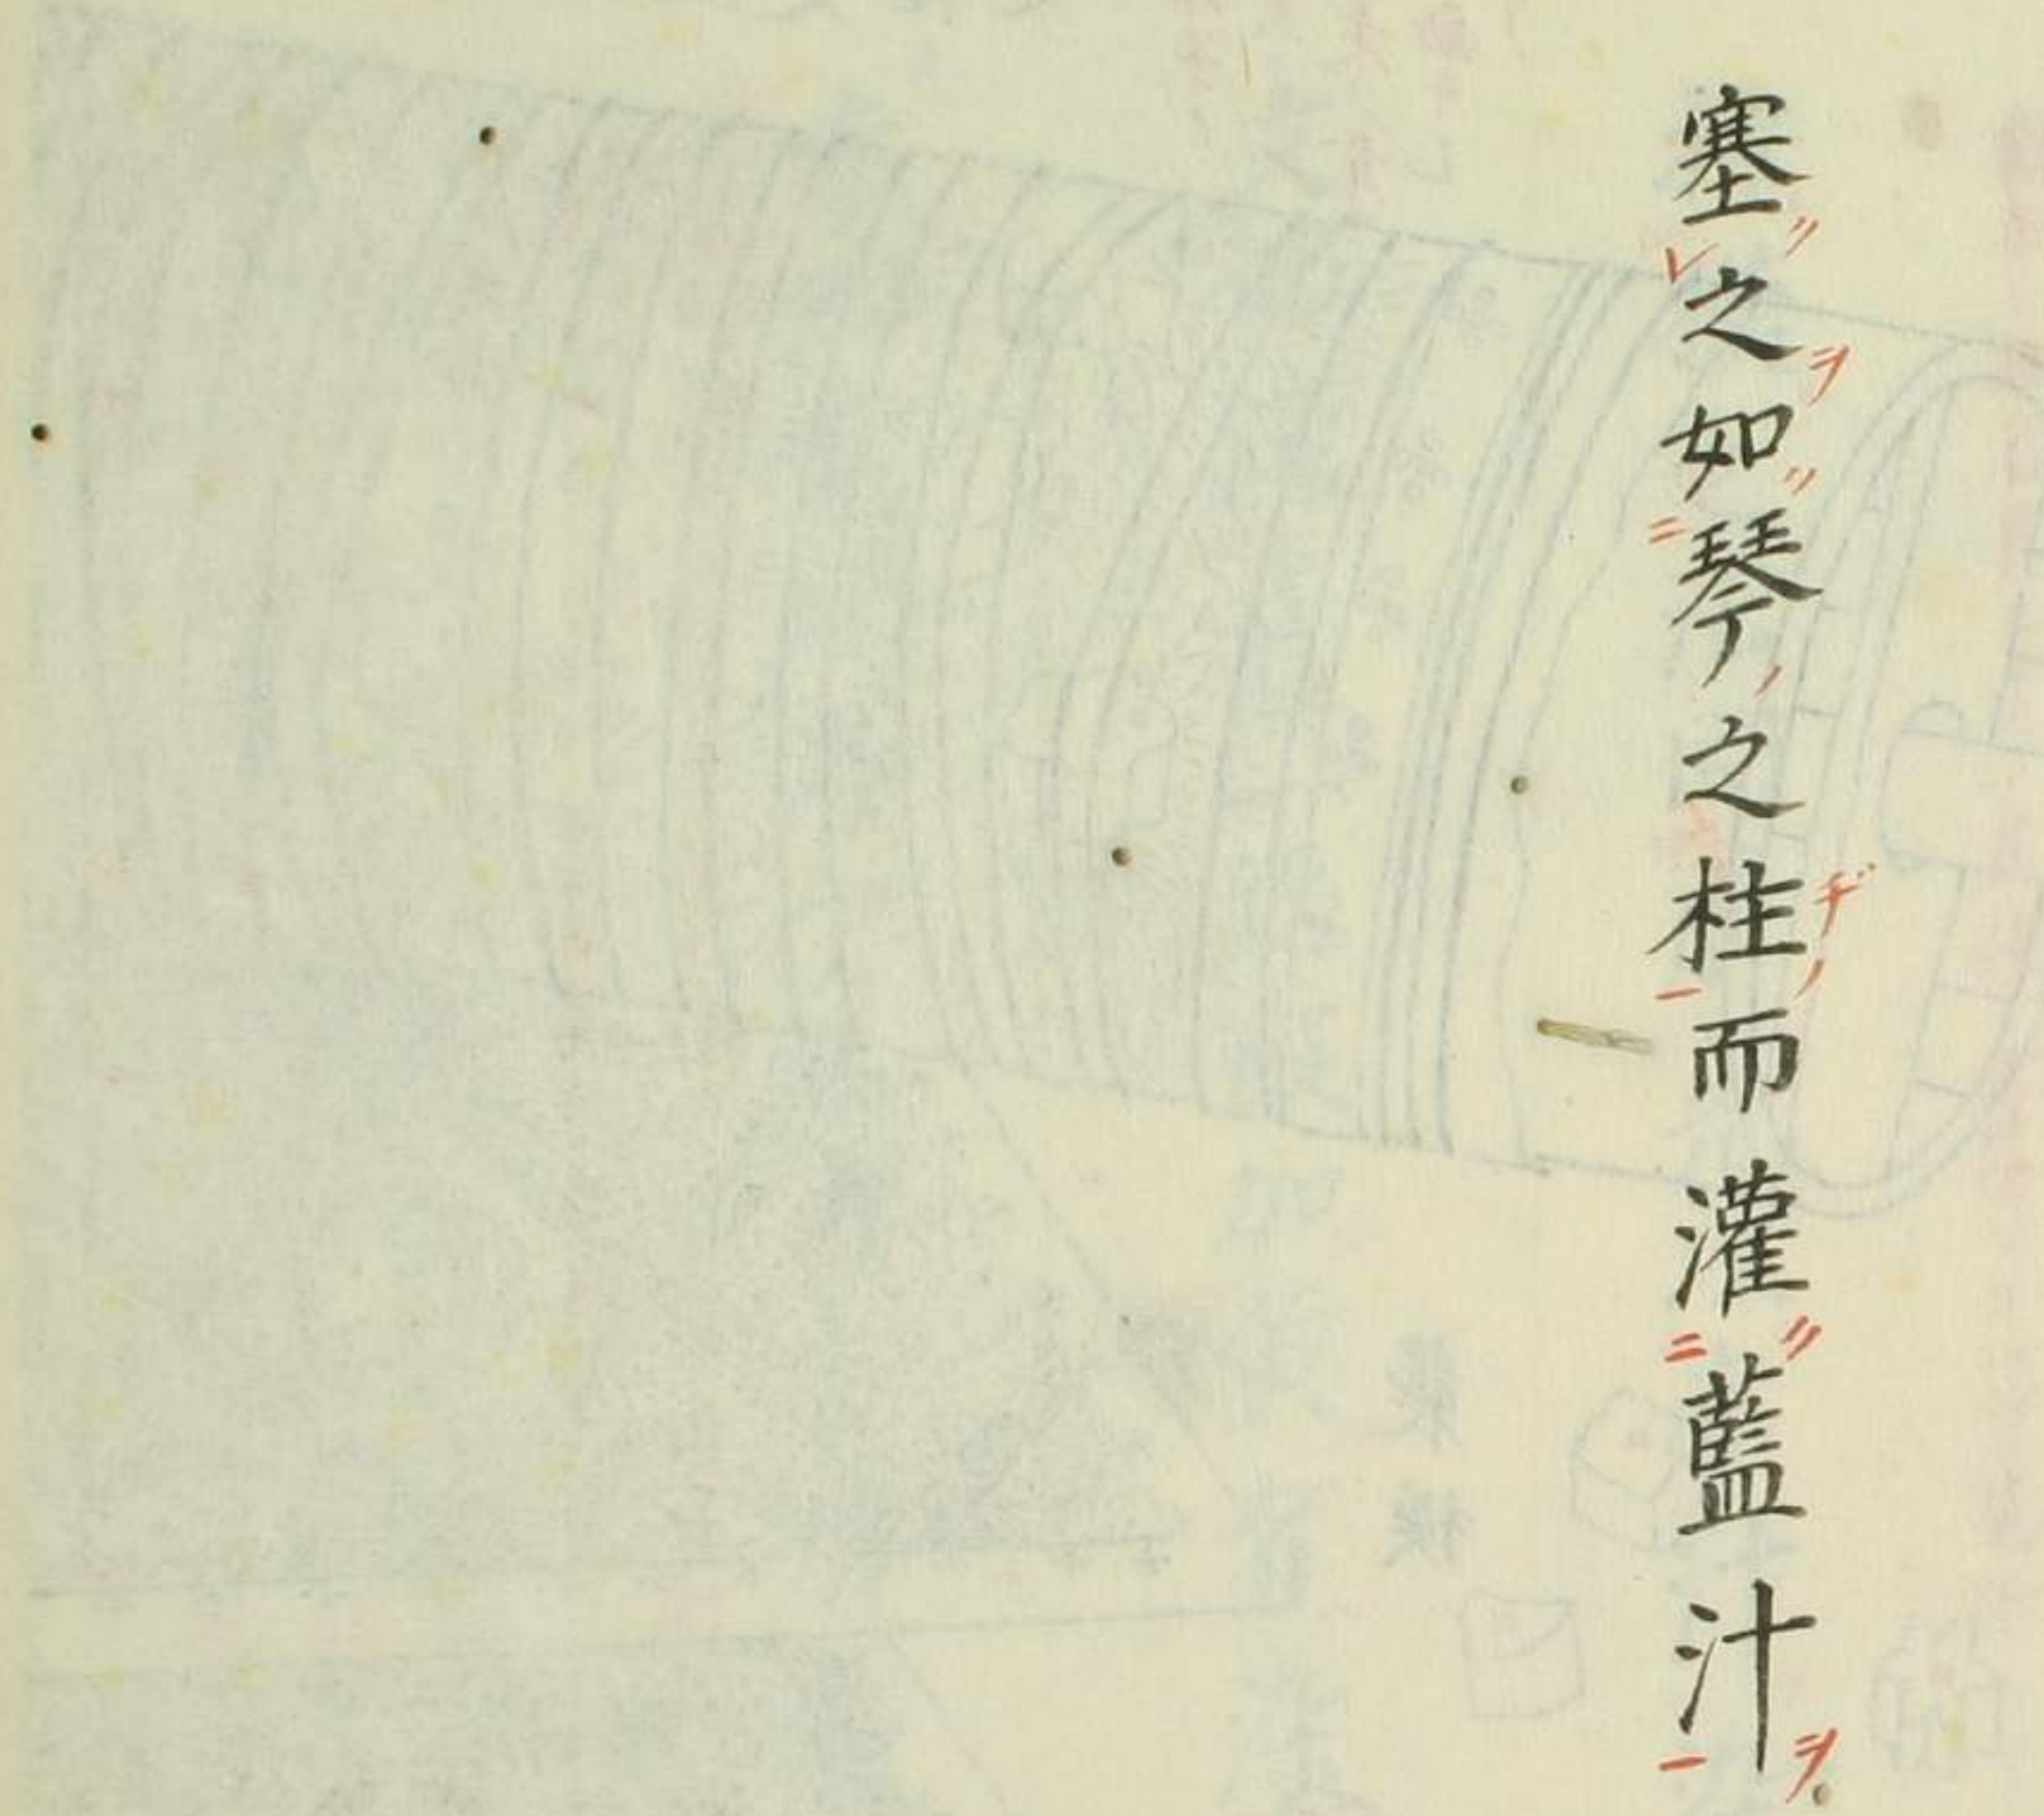 塞之如琴之柱而灌藍汁